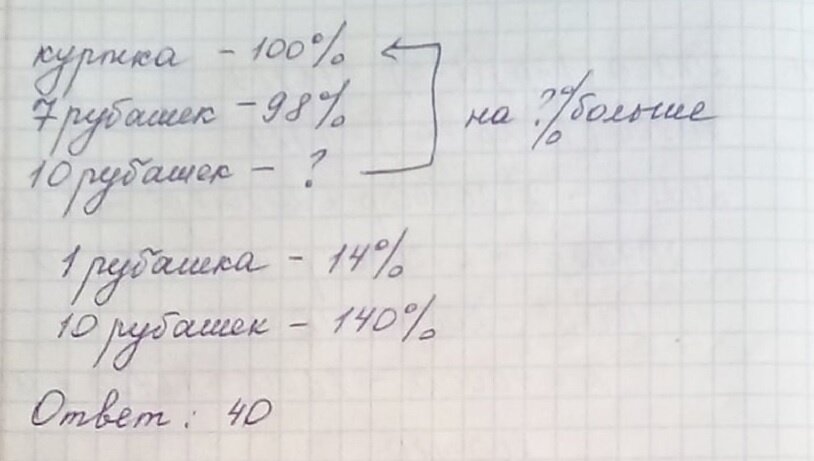 куртка - 100%
7 рубашек - 98%
на ?% больше
10 рубашек - ?
1 рубашка - 14%
10 рубашек - 140%
Ответ: 40